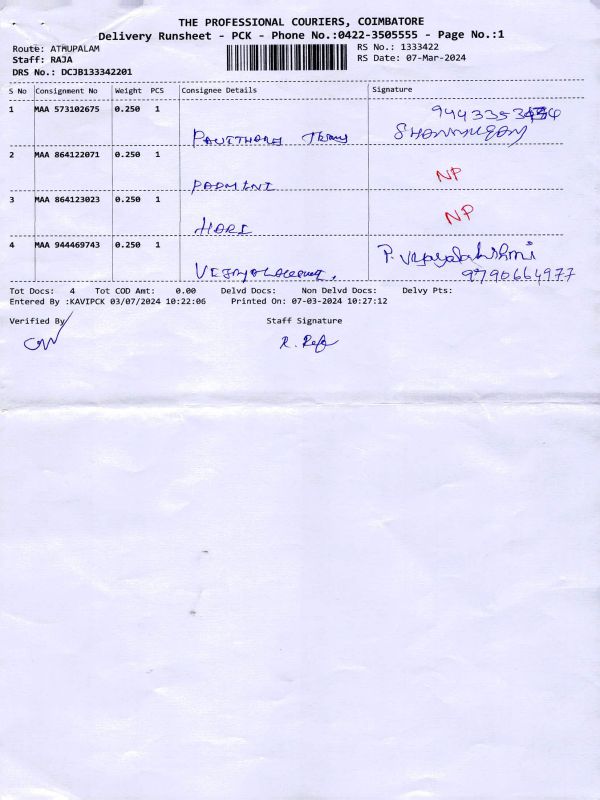 THE PROFESSIONAL COURIERS, COIMBATORE
Delivery Runsheet - PCK - Phone No.:0422-3505555 - Page No.:1
Route: ATHUPALAM
RS No.: 1333422
Staff: RAJA
RS Date: 07-Mar-2024
DRS No.: DCJB133342201
S No Consignment No Weight PCS Consignee Details Signature
1 MAA 573102675 0.250 1
SHANMUGAM
2 MAA 864122071 0.250 1
PADMINI NP
3 MAA 864123023 0.250 1
HARI NP
4 MAA 944469743 0.250 1 P. Vijayalakshmi
9790664977
Tot Docs: 4 Tot COD Amt: 0.00 Delvd Docs: Non Delvd Docs: Delvy Pts:
Entered By :KAVIPCK 03/07/2024 10:22:06 Printed On: 07-03-2024 10:27:12
Verified By Staff Signature
R. Raja